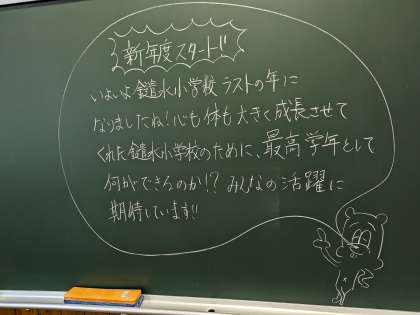 新年度スタート!!
いよいよ鑓水小学校ラストの年に
なりましたね!心も体も大きく成長させて
くれた鑓水小学校のために、最高学年として
何ができるのか!?みんなの活躍に
期待しています!!